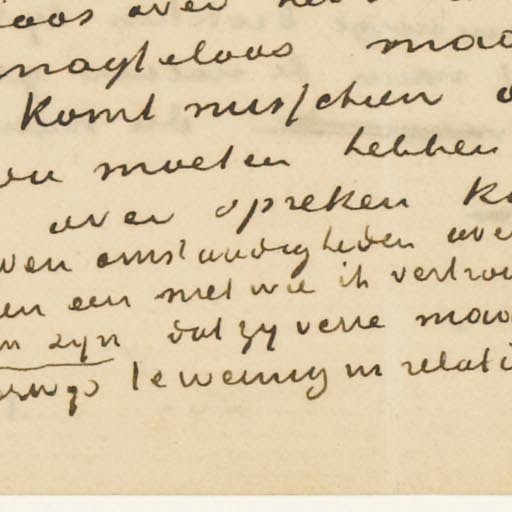 loos over
magteloos
komt misschien
ou moeten hebben
over spreken
ven omstandigheden over
en een met wie ik vertrou
zyn dat zy verre
te weinig in relati